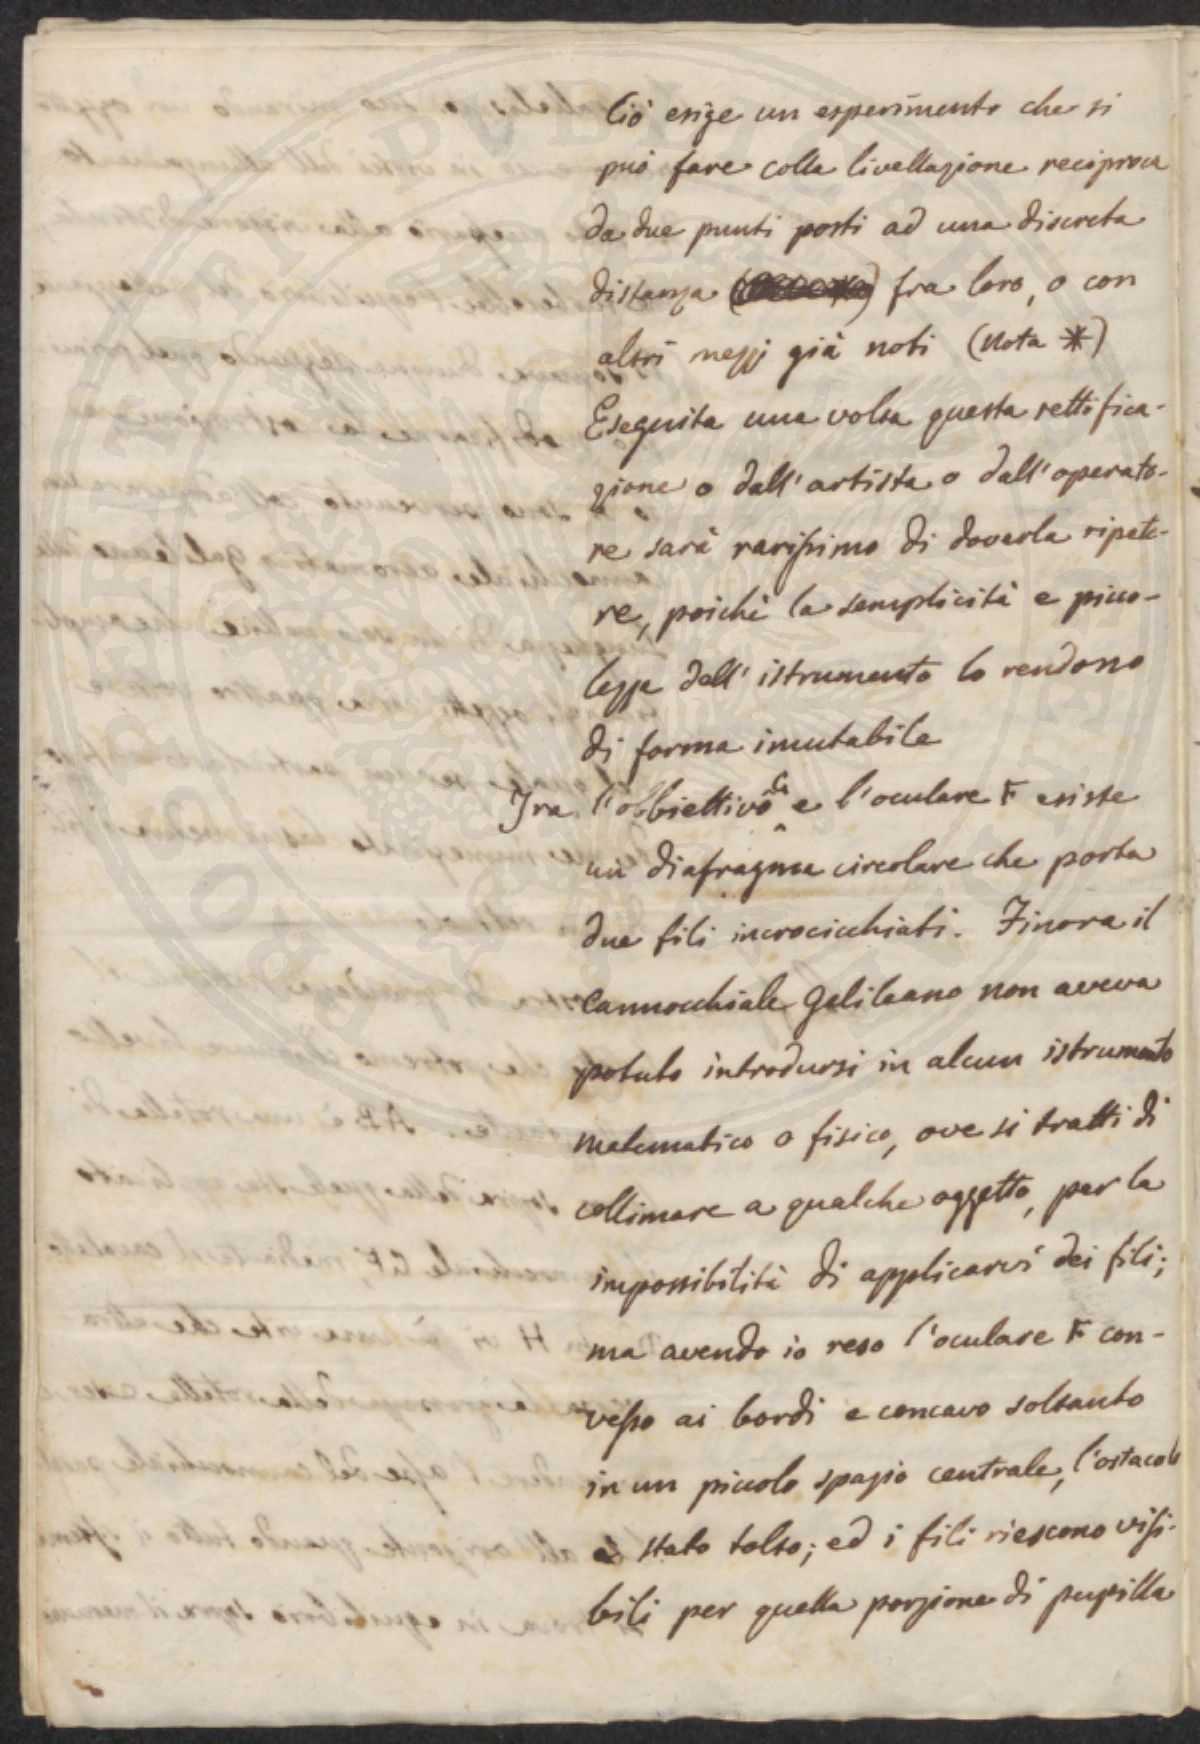 Ciò esige un esperimento che si
può fare colla livellazione reciproca
da due punti posti ad una discreta
distanza fra loro, o con
altri mezzj già noti (Nota *)
Eseguita una volta questa rettifica-
zione o dall'artista o dall'operato-
re sarà rarissimo di doverla ripete-
re, poichè la semplicità e picco-
lezza dell'istrumento lo rendono
di forma imutabile
Fra l'obbiettivo G e l'oculare F esiste
un diafragma circolare che porta
due fili incrocicchiati. Finora il
Cannocchiale Galileano non aveva
potuto introdursi in alcun istrumento
matematico o fisico, ove si tratti di
collimare a qualche oggetto, per la
impossibilità di applicarvi dei fili;
ma avendo io reso l'oculare F con-
vesso ai bordi e concavo soltanto
in un piccolo spazio centrale, l'ostacolo
è stato tolto; ed i fili riescono visi-
bili per quella porzione di pupilla